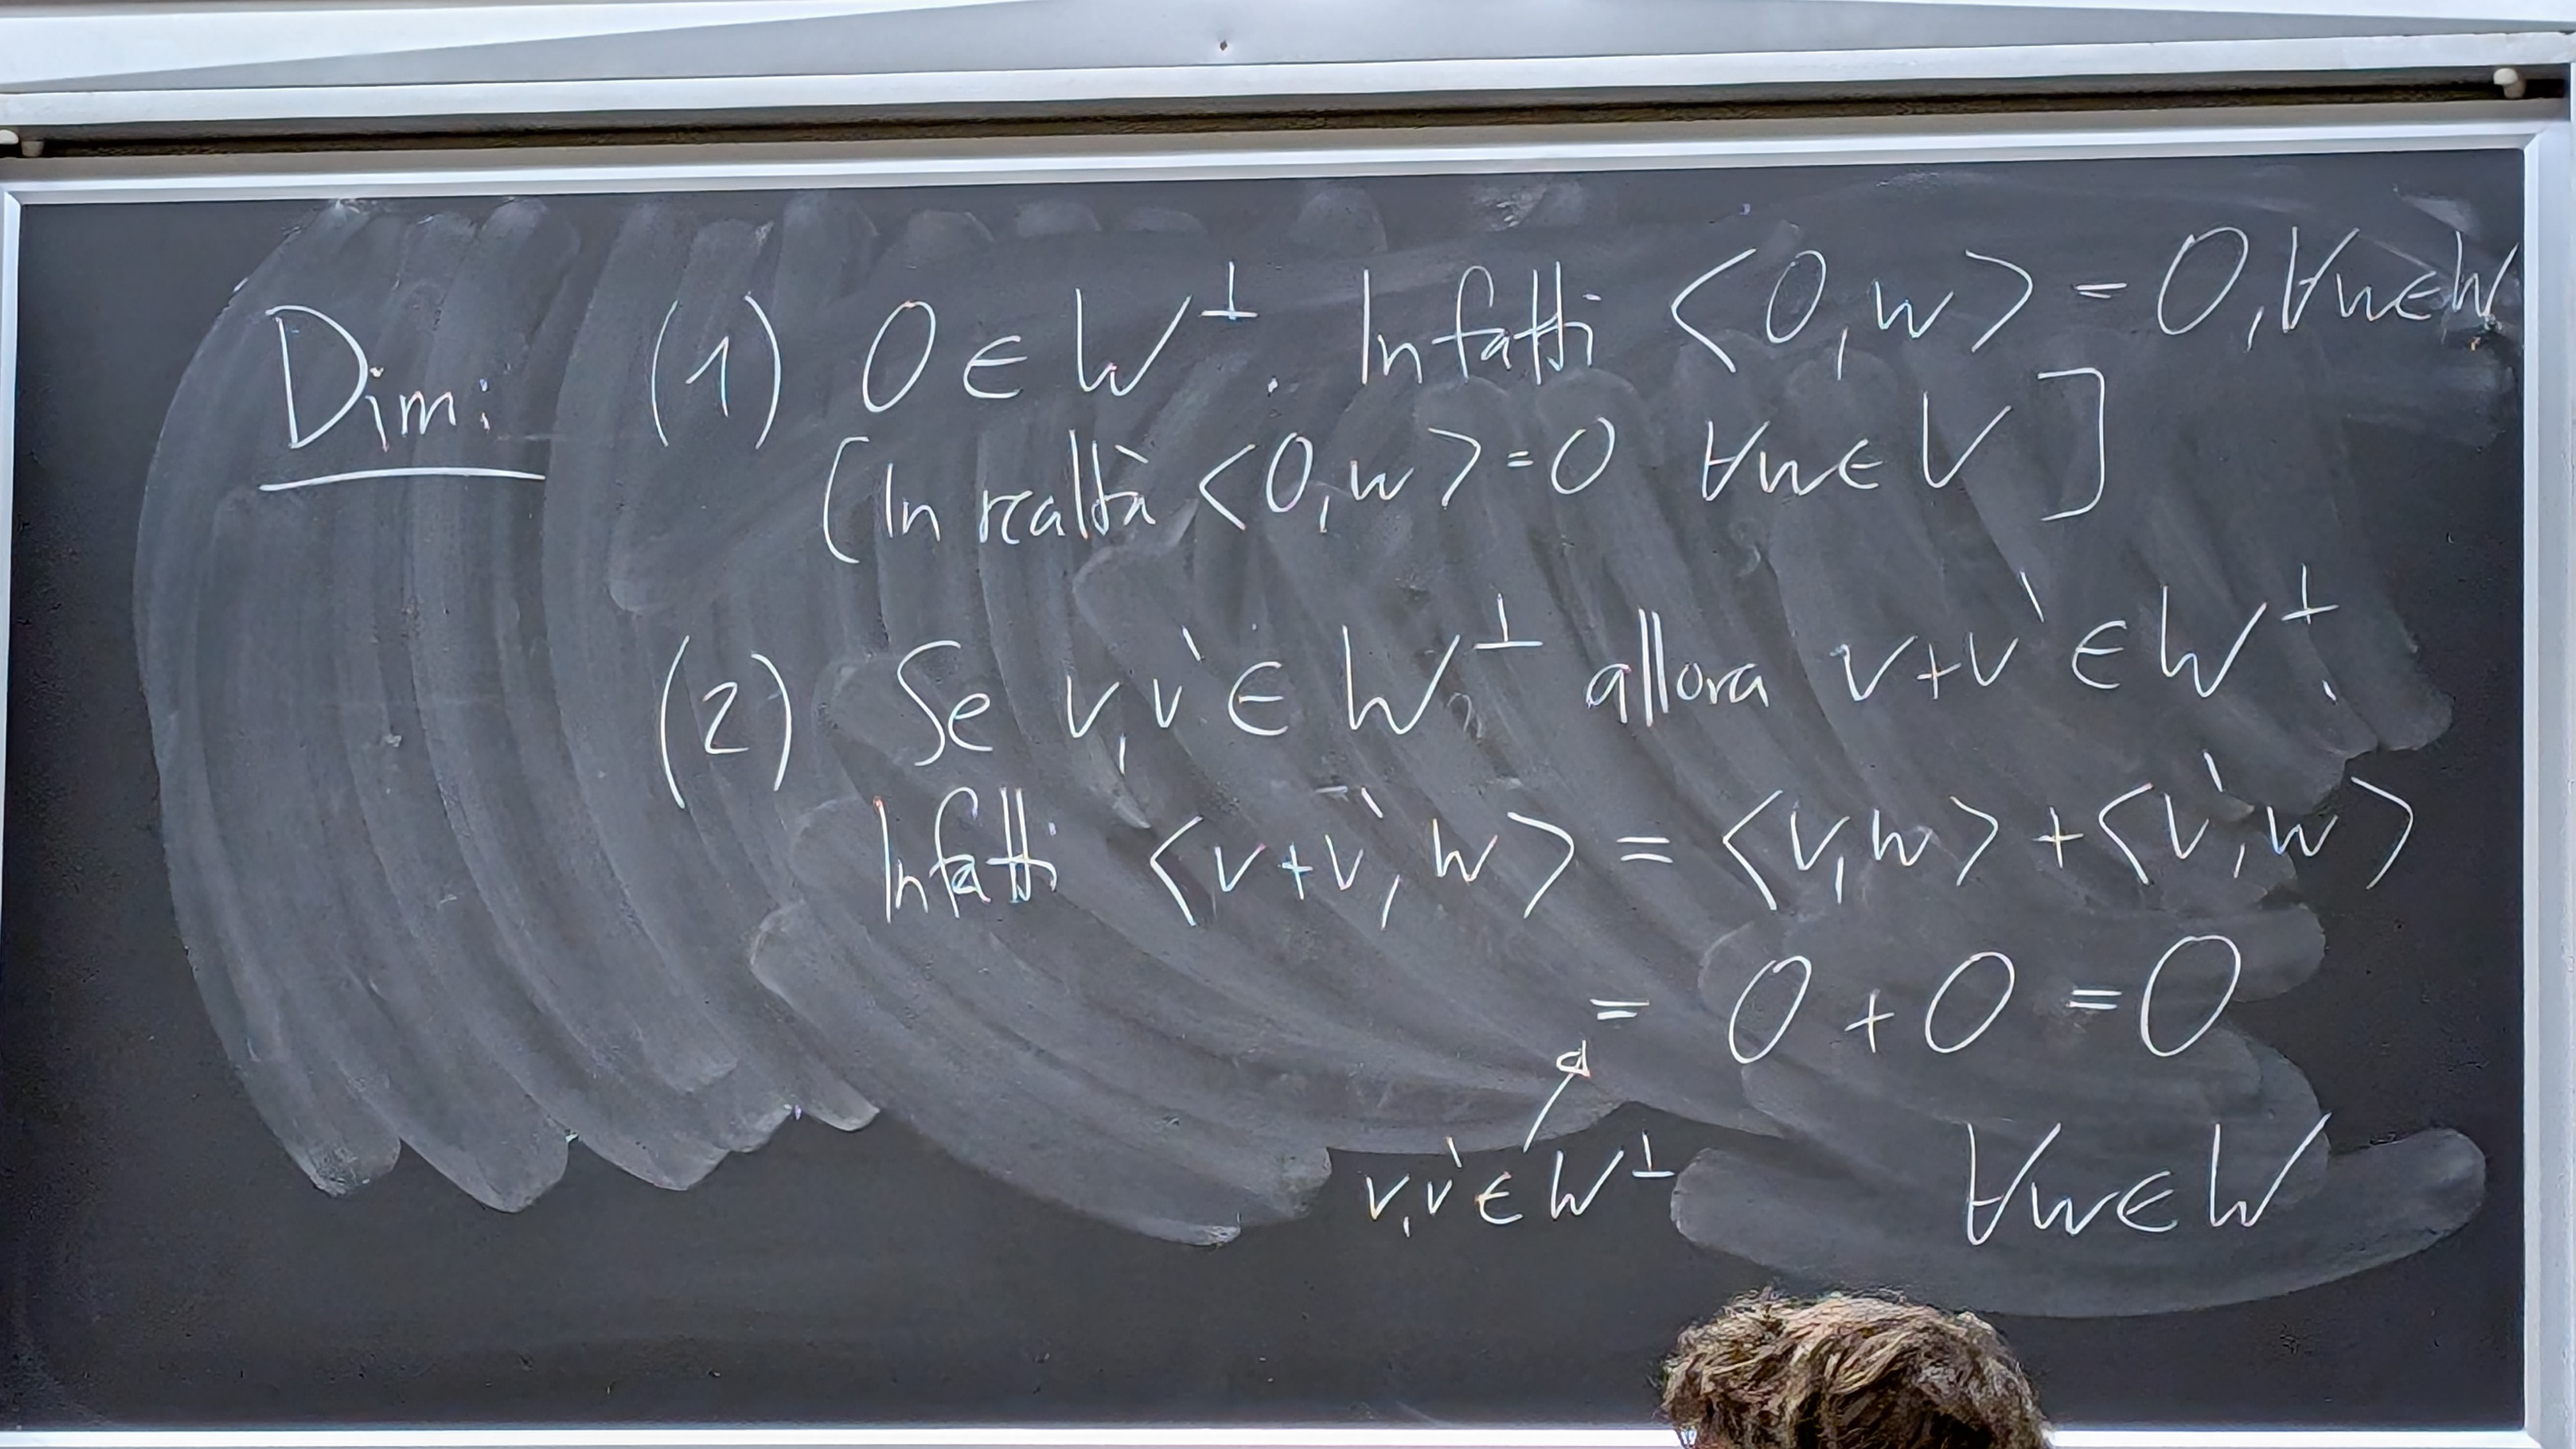 Dim: (1) 0 ∈ W⊥. Infatti <0,w> = 0, ∀w∈W
[In realtà <0,w> = 0 ∀w∈V]
(2) Se v,v' ∈ W⊥, allora v+v' ∈ W⊥.
Infatti <v+v', w> = <v,w> + <v',w>
= 0 + 0 = 0
v,v' ∈ W⊥ ∀w∈W